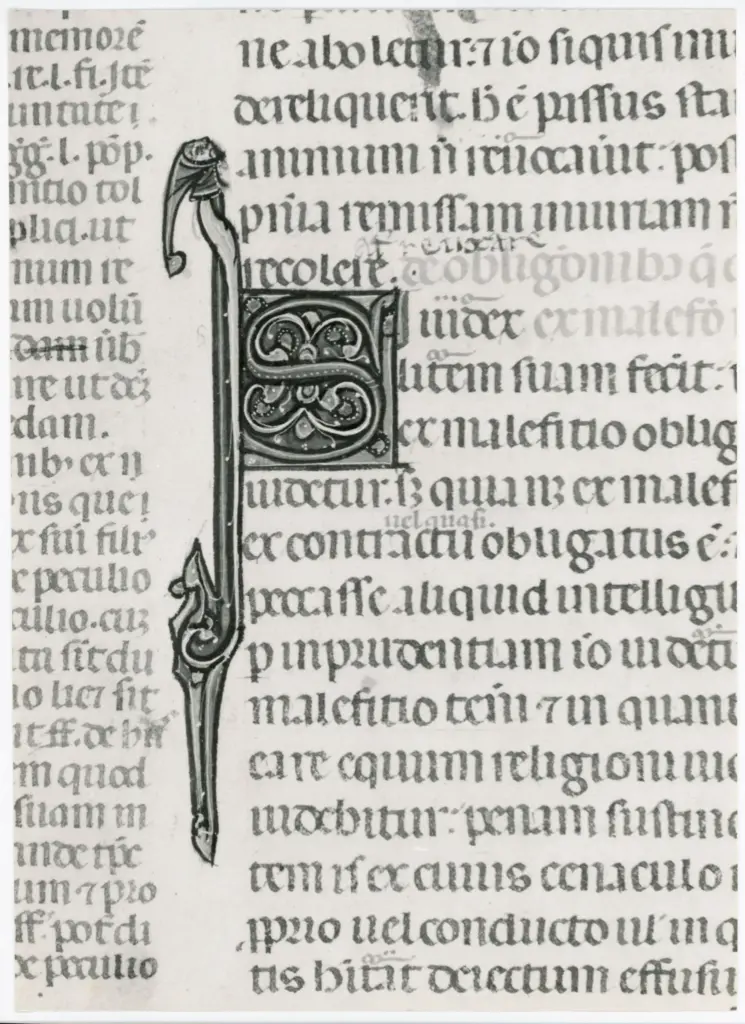 memorē
.it.l.fi.Jtē
untate i
gḡ.l. pōp.
ntio tol
plici.ut
num re
am uolū
dam ūb
ne ut dcz
dam.
nb' ex ii
ns que i
x sui filii
e peculio
culio.cuz
ta sit du
io licz sit
it ff. de
m quod
suam in
inde
um ⁊ pro
ff. pot di
e peculio
ne aboletur:⁊ iō siquis iniu
dereliquerit. h̄ ē passus sta
animum ñ reuocauit: pos
pria remissam iniuriam ñ
recolere. de obligōnibɔ q̄ ꝺ
af reuocare
iudex ex malefō
litem suam fecit:
ex maleficio oblig
uidetur. sꝫ quia nꝫ ex malef
uel quasi.
ex contractu obligatus ē:
peccasse aliquid intelligit
p inprudentiam iō uidet
maleficio teneri ⁊ in quant
care equum religioni iud
uidebitur: penam sustine
tem is ex cuius cenaculo
pprio uel conducto ul' in q
tis hītat deiectum effusū